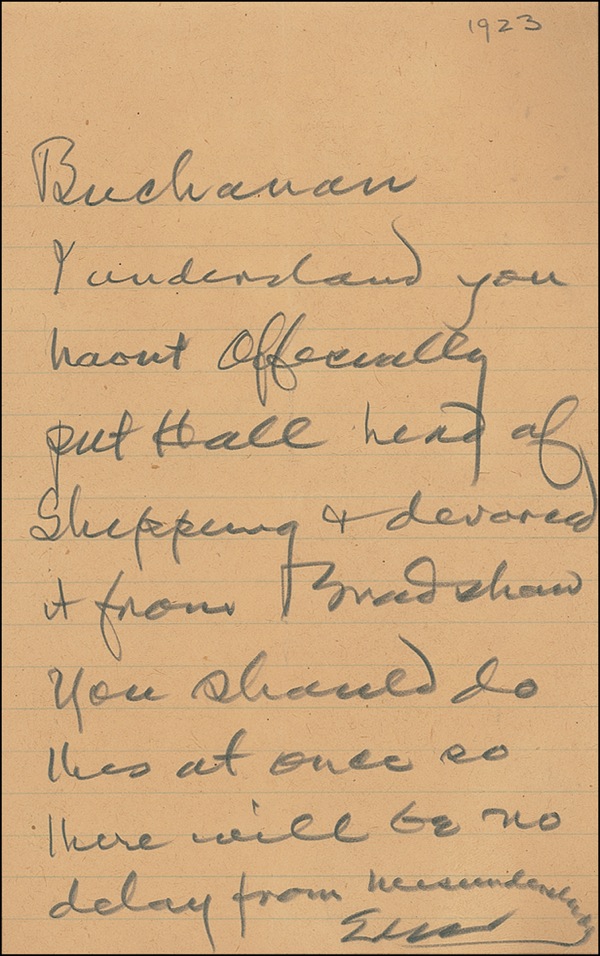 1923
Buchanan
I understand you
havnt Officially
put Hall head of
Shipping & devorced
it from Bradshaw
You should do
this at once so
there will be no
delay from misunderstanding